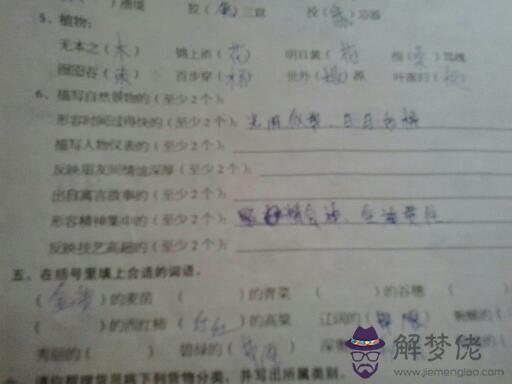 ( )濒境 狡( 兔 )三窟 投( 鼠 )忌器
5、植物：
无本之( 木 ) 锦上添( 花 ) 明日黄( 花 ) 指( 桑 )骂槐
囫囵吞( 枣 ) 百步穿( 杨 ) 世外( 桃 )源 叶落归( )
6、描写自然景物的(至少2个)：
形容时间过得快的(至少2个)：光阴似箭、日月如梭
描写人物仪表的(至少2个)：
反映朋友间情谊深厚(至少2个)：
出自寓言故事的(至少2个)：
形容精神集中的(至少2个)：聚精会神、全神贯注
反映技艺高超的(至少2个)：
五、在括号里填上合适的词语。
( 金黄 )的麦苗 ( )的青菜 ( )的谷穗 (
( )的西红柿 ( 红红 )的高粱 辽阔的( ) 蜿蜒的(
秀丽的( ) 碧绿的( ) 深
请你帮理货员将下列货物分类，并写出所属类别。
解梦佬
www.jiemenglao.com